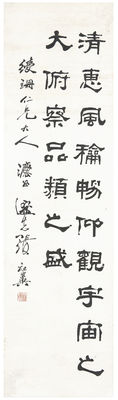 清惠風穐暢仰觀宇宙之
大俯察品類之盛
绶珊仁兄大人